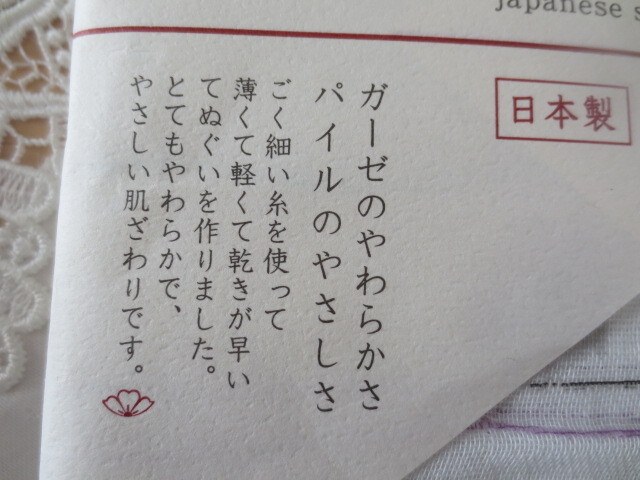 japanese
日本製
ガーゼのやわらかさ
パイルのやさしさ
ごく細い糸を使って
薄くて軽くて乾きが早い
てぬぐいを作りました。
とてもやわらかで、
やさしい肌ざわりです。